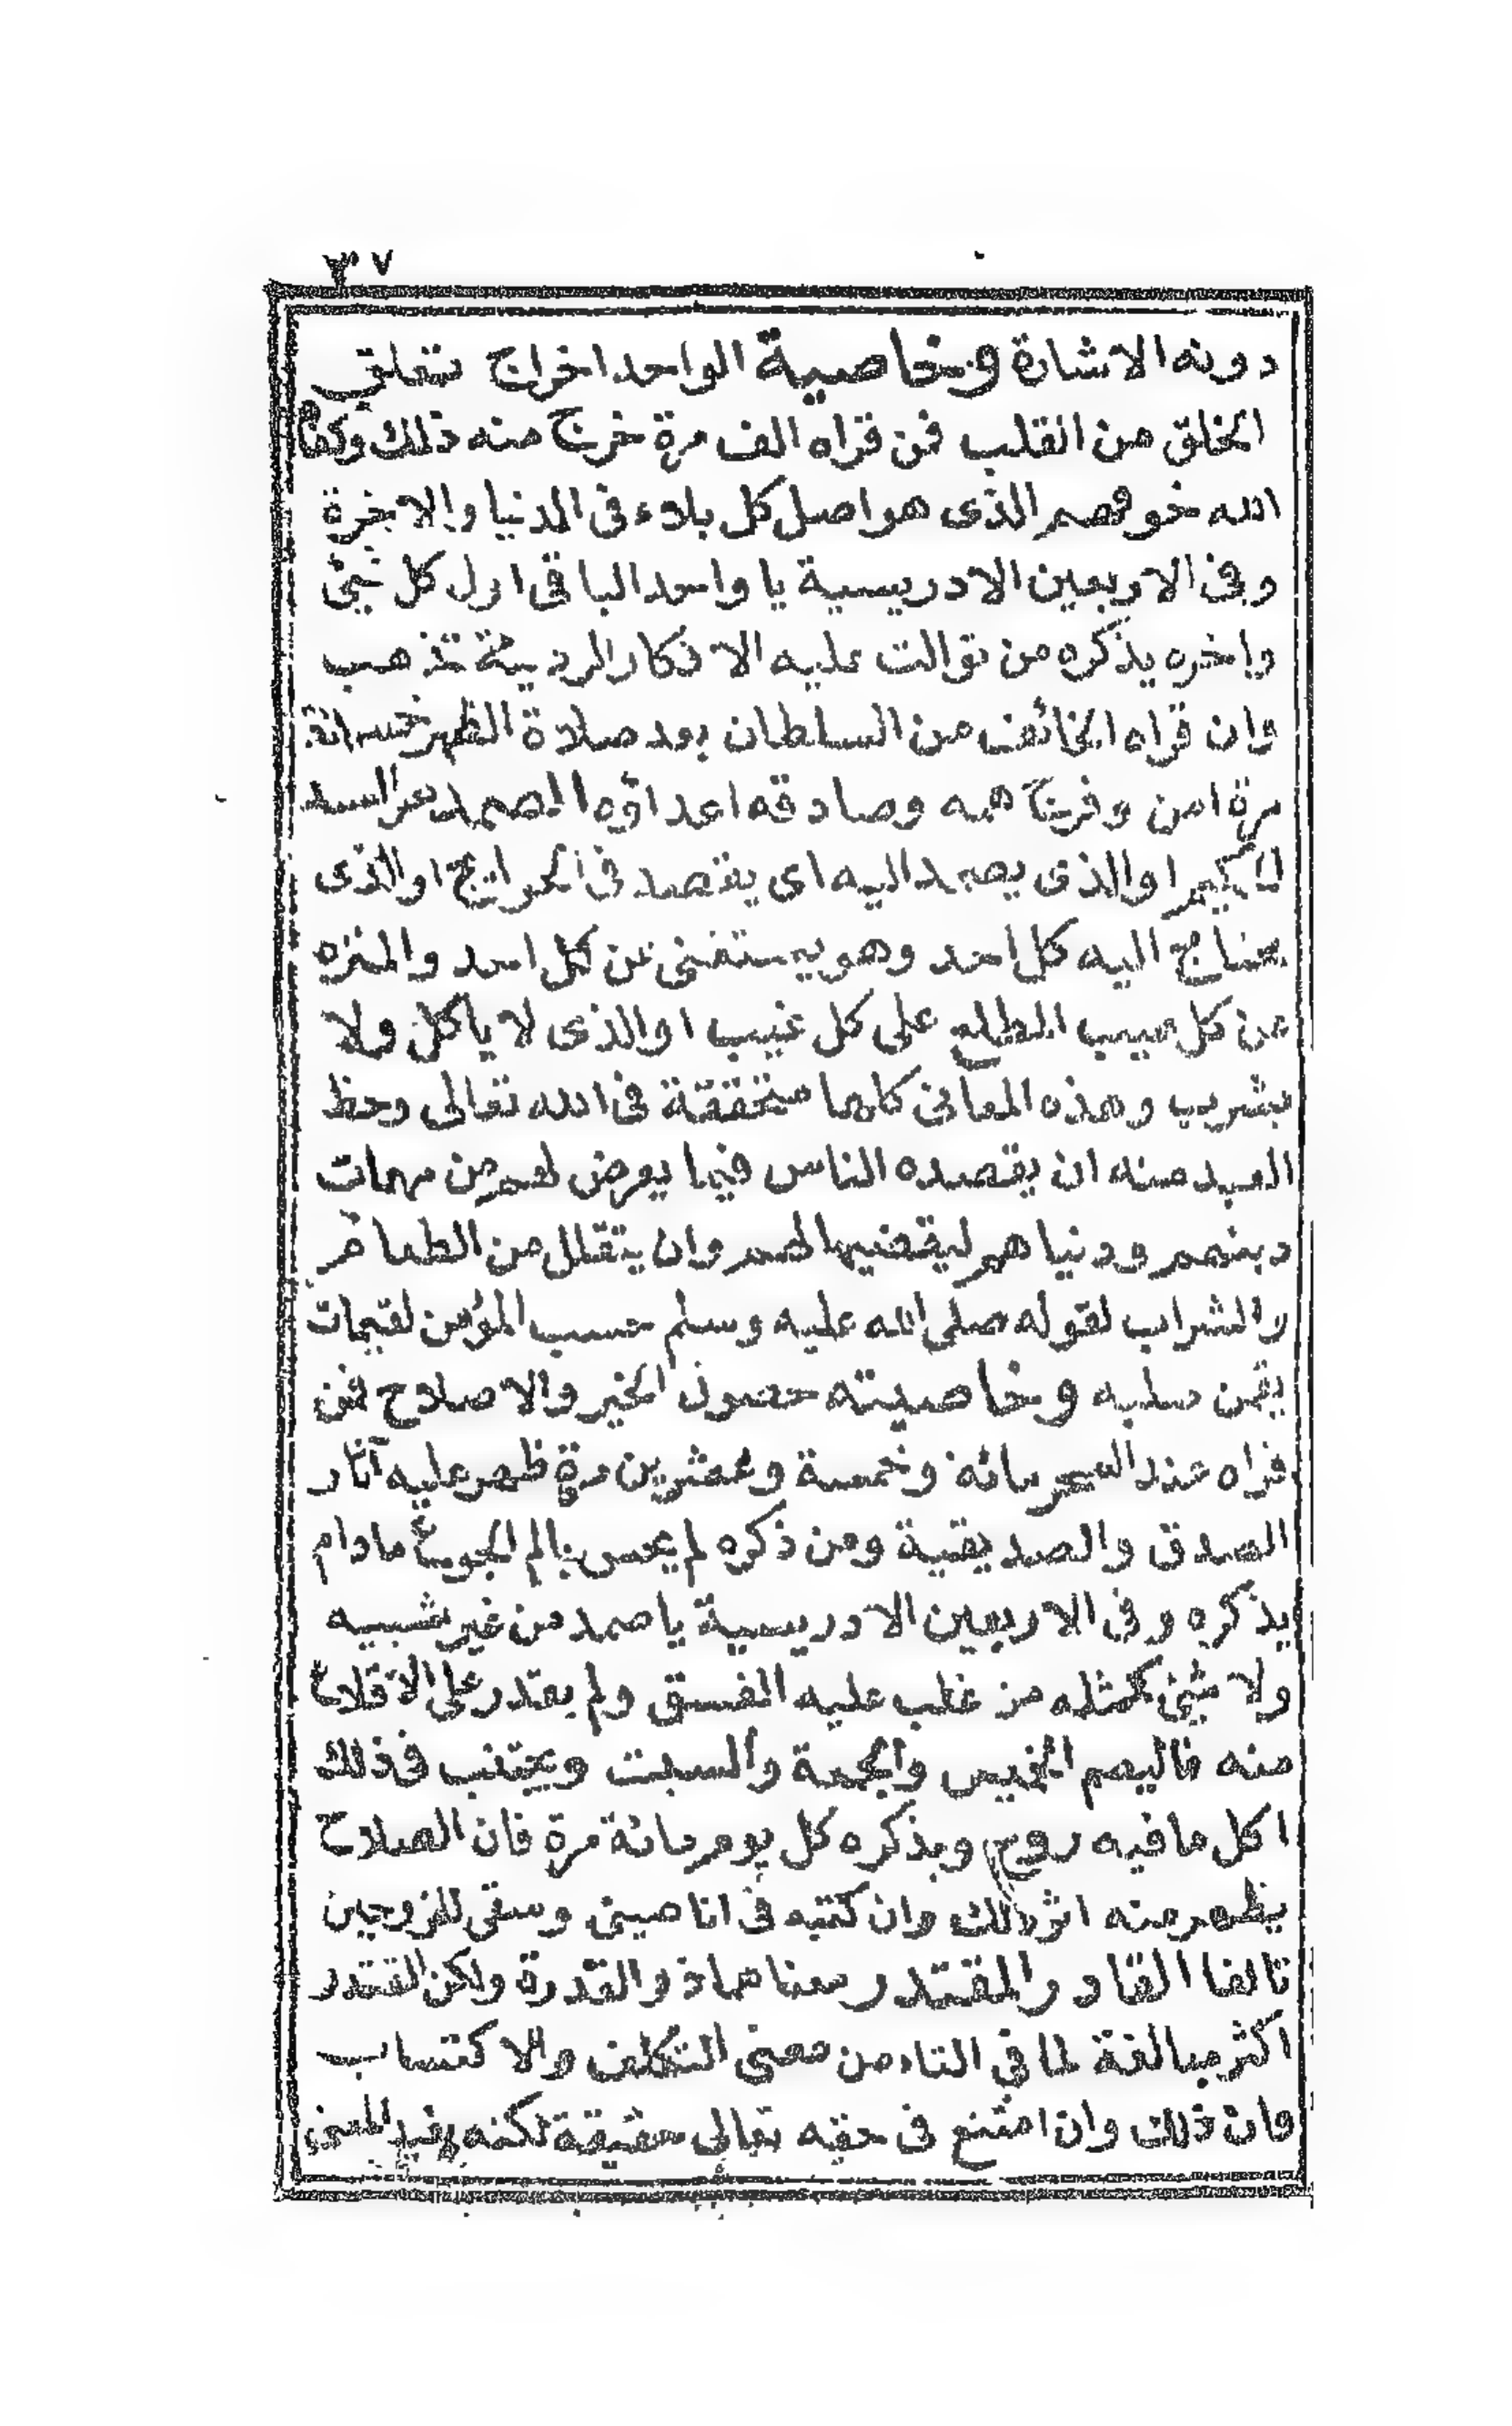 ٣٧
دونه الاشارة وخاصية الواحد اخراج تعلق
الخلق من القلب فمن قراه الف مرة خرج منه ذلك وكفاه
الله خوفهم الذى هو اصل كل بلاء فى الدنيا والاخرة
وفى الاربعين الادريسية يا واحد الباقى اول كل شئ
واخره يذكره من توالت عليه الافكار الرديئة تذهب
وان قراه الخائف من السلطان بعد صلاة الظهر خمسمائة
مرة امن وفرج همه وصادقه اعداؤه الصمد هو السيد
الكبير او الذى يصمد اليه اى يقصد فى الحوايج او الذى
يحتاج اليه كل احد وهو يستغنى عن كل احد والمنزه
عن كل عيب المطلع على كل غيب او الذى لا ياكل ولا
يشرب وهذه المعانى كلها متحققة فى الله تعالى وحظ
العبد منه ان يقصده الناس فيما يعرض لهم من مهمات
دينهم ودنياهم ليقضيها لهم وان يتقلل من الطعام
والشراب لقوله صلى الله عليه وسلم حسب المؤمن لقيمات
يقمن صلبه وخاصيته حصول الخير والاصلاح فمن
قراه عند السحر مائة وخمسة وعشرين مرة ظهر عليه آثار
الصدق والصديقية ومن ذكره لم يحس بالم الجوع مادام
يذكره وفى الاربعين الادريسية يا صمد من غير شبيه
ولا شئ كمثله من غلب عليه الفسق ولم يقدر على الاقلاع
منه فاليصم الخميس والجمعة والسبت ويجتنب فى ذلك
اكل ما فيه روح ويذكره كل يوم مائة مرة فان الصلاح
يظهر منه اثر ذلك وان كتبه فى انا صينى وسقى للزوجين
تالفا القادر والمقتدر معناهما ذو القدرة ولكن المقتدر
اكثر مبالغة لما فى التاء من معنى التكلف والاكتساب
فان ذلك وان امتنع فى حقه تعالى حقيقة لكنه يفيد المعنى